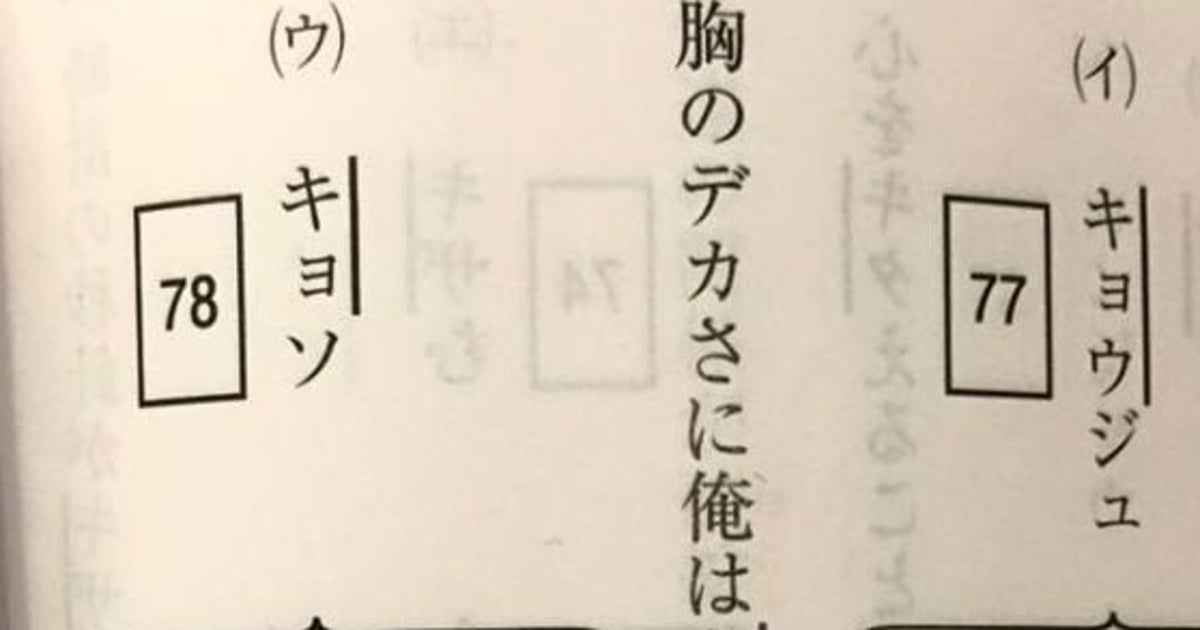 (イ) キョウジュ
77
胸のデカさに俺は
(ウ) キョソ
78